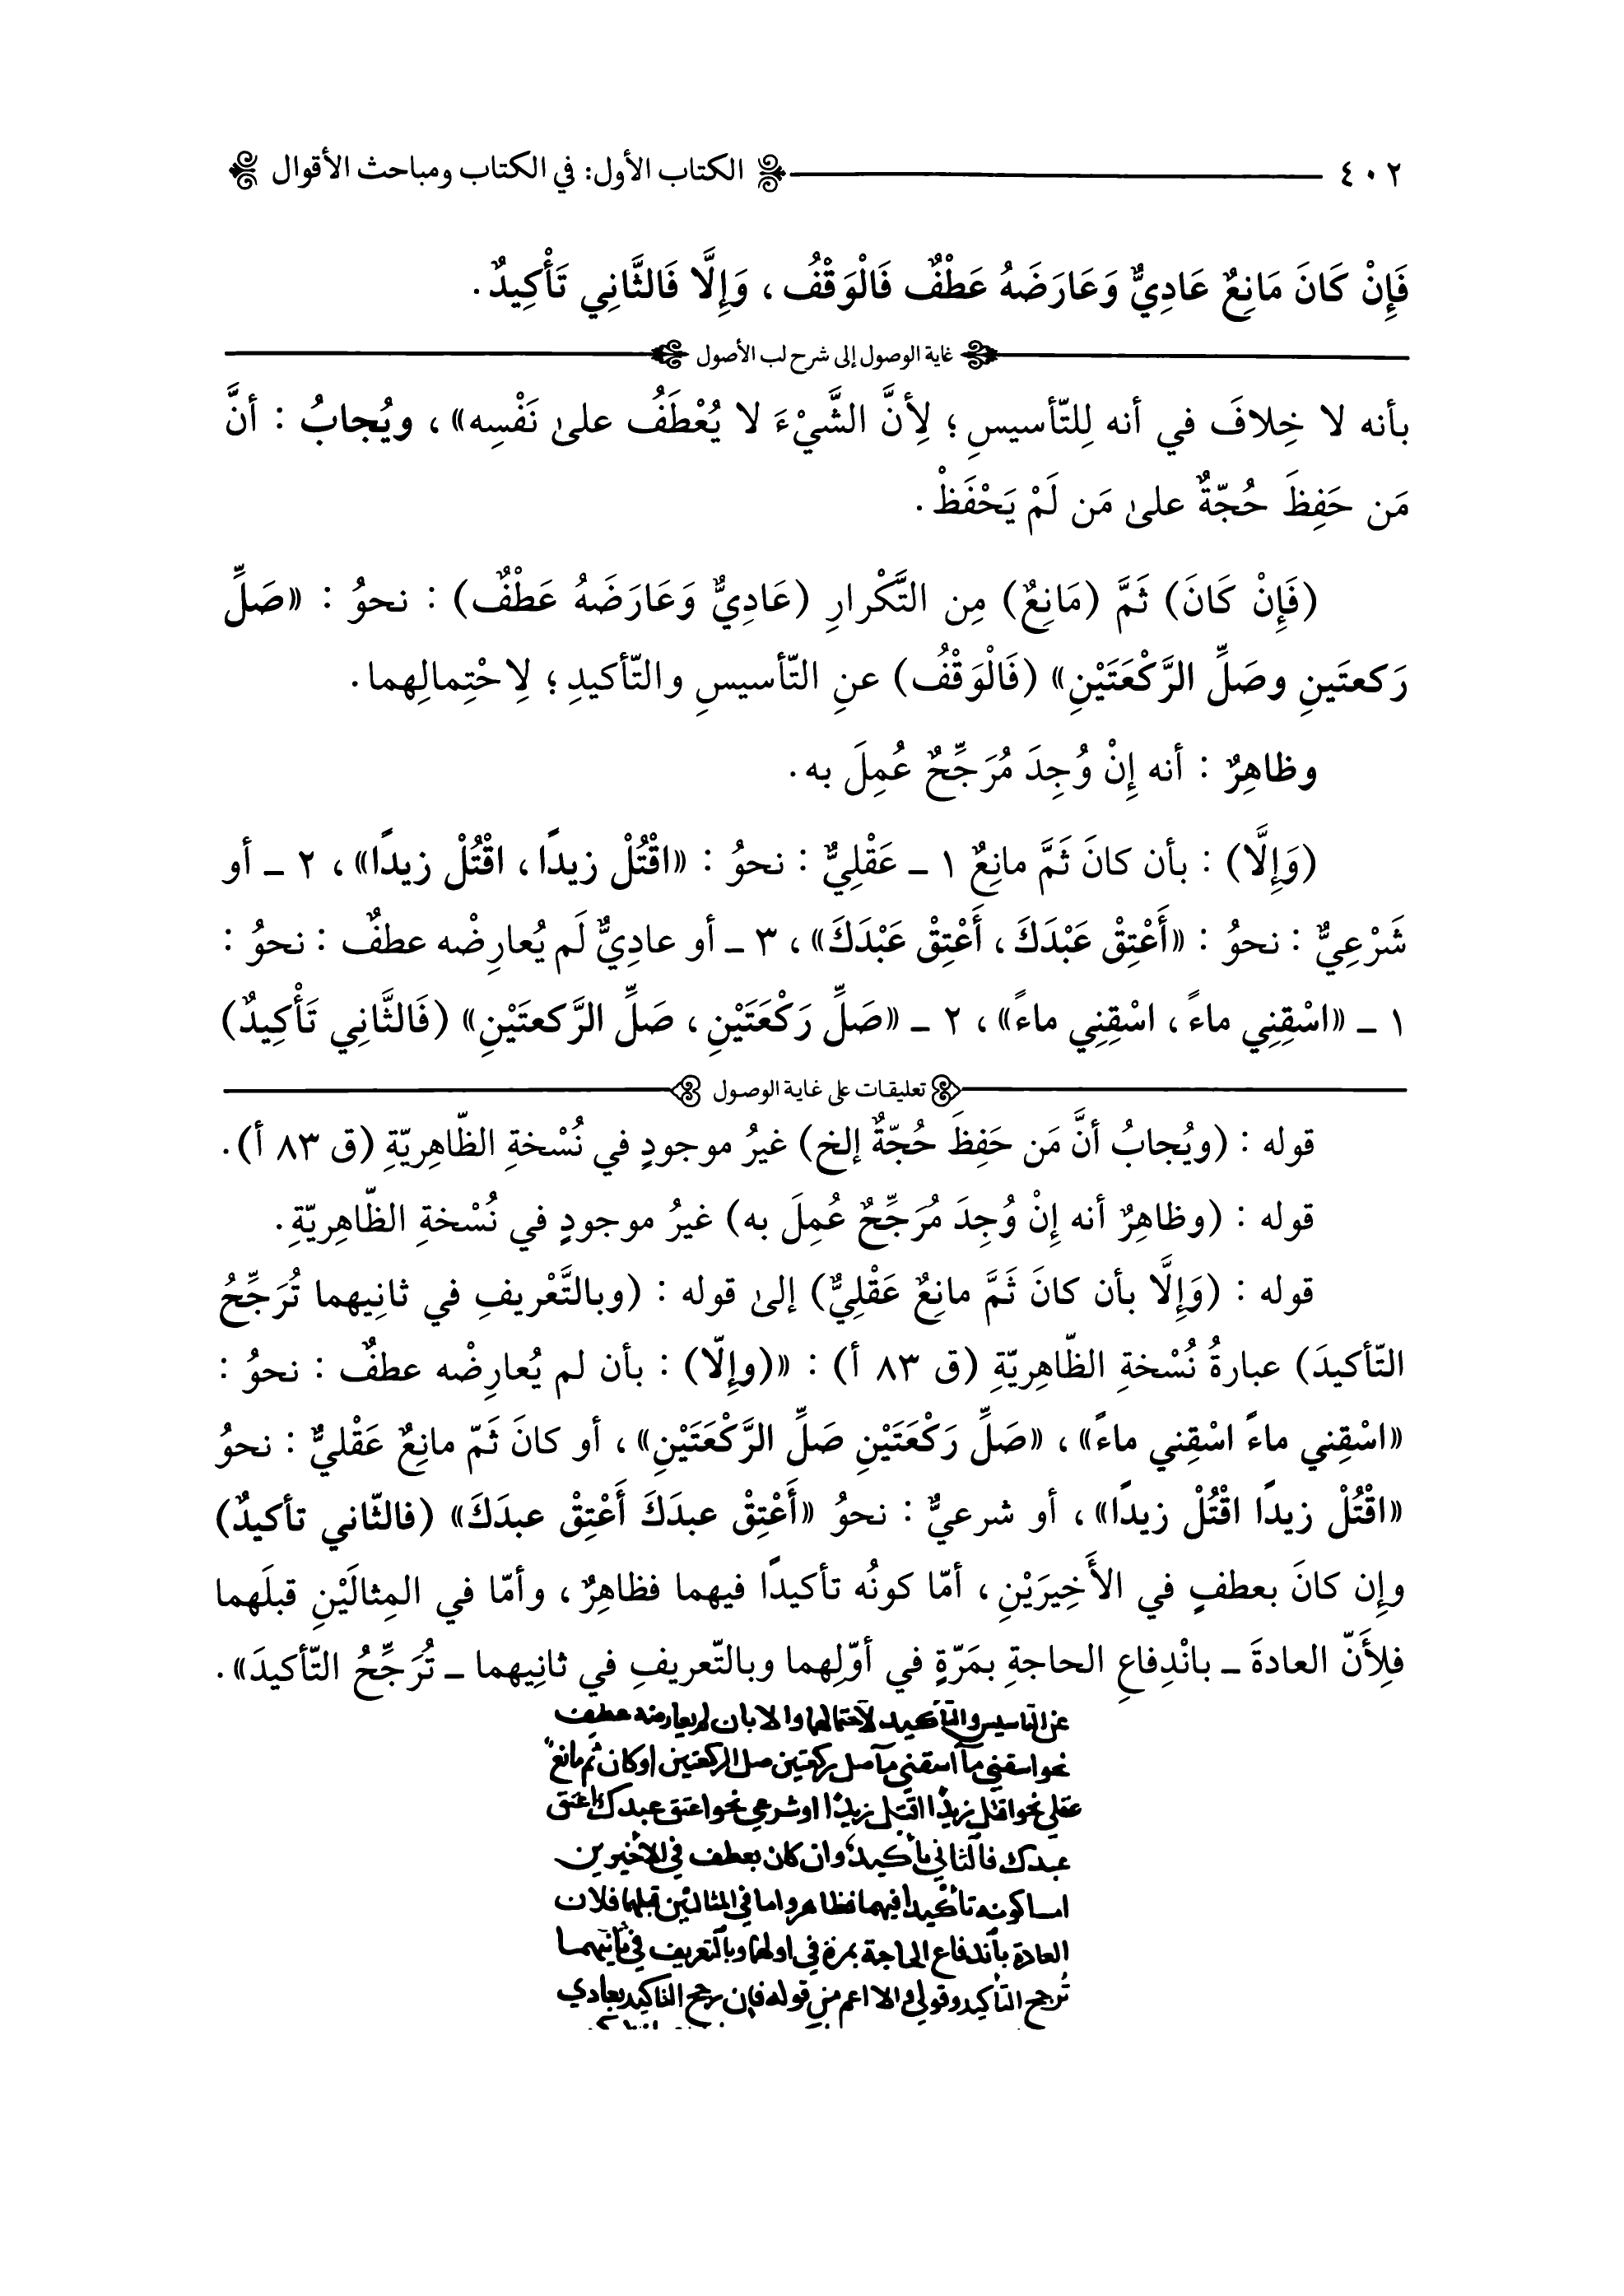 ٤٠٢ الكتاب الأول: في الكتاب ومباحث الأقوال
فَإِنْ كَانَ مَانِعٌ عَادِيٌّ وَعَارَضَهُ عَطْفٌ فَالْوَقْفُ، وَإِلَّا فَالثَّانِي تَأْكِيدٌ.
غاية الوصول إلى شرح لب الأصول
بأنه لا خِلافَ في أنه لِلتّأسيسِ؛ لِأنَّ الشَّيْءَ لا يُعْطَفُ علىٰ نَفْسِه»، ويُجابُ: أنَّ
مَن حَفِظَ حُجّةٌ علىٰ مَن لَمْ يَحْفَظْ.
(فَإِنْ كَانَ) ثَمَّ (مَانِعٌ) مِن التَّكْرارِ (عَادِيٌّ وَعَارَضَهُ عَطْفٌ): نحوُ: «صَلِّ
رَكعتَينِ وصَلِّ الرَّكْعَتَيْنِ» (فَالْوَقْفُ) عنِ التّأسيسِ والتّأكيدِ؛ لِاحْتِمالِهما.
وظاهِرٌ: أنه إِنْ وُجِدَ مُرَجِّحٌ عُمِلَ به.
(وَإِلَّا): بأن كانَ ثَمَّ مانِعٌ ١ ـ عَقْلِيٌّ: نحوُ: «اقْتُلْ زيدًا، اقْتُلْ زيدًا»، ٢ ـ أو
شَرْعِيٌّ: نحوُ: «أَعْتِقْ عَبْدَكَ، أَعْتِقْ عَبْدَكَ»، ٣ ـ أو عادِيٌّ لَم يُعارِضْه عطفٌ: نحوُ:
١ ـ «اسْقِنِي ماءً، اسْقِنِي ماءً»، ٢ ـ «صَلِّ رَكْعَتَيْنِ، صَلِّ الرَّكعتَيْنِ» (فَالثَّانِي تَأْكِيدٌ)
تعليقات على غاية الوصول
قوله: (ويُجابُ أنَّ مَن حَفِظَ حُجّةٌ إلخ) غيرُ موجودٍ في نُسْخةِ الظّاهِريّةِ (ق ٨٣ أ).
قوله: (وظاهِرٌ أنه إِنْ وُجِدَ مُرَجِّحٌ عُمِلَ به) غيرُ موجودٍ في نُسْخةِ الظّاهِريّةِ.
قوله: (وَإِلَّا بأن كانَ ثَمَّ مانِعٌ عَقْلِيٌّ) إلىٰ قوله: (وبالتَّعْريفِ في ثانِيهما تُرَجِّحُ
التّأكيدَ) عبارةُ نُسْخةِ الظّاهِريّةِ (ق ٨٣ أ): «(وإِلّا): بأن لم يُعارِضْه عطفٌ: نحوُ:
«اسْقِني ماءً اسْقِني ماءً»، «صَلِّ رَكْعَتَيْنِ صَلِّ الرَّكْعَتَيْنِ»، أو كانَ ثَمّ مانِعٌ عَقْليٌّ: نحوُ
«اقْتُلْ زيدًا اقْتُلْ زيدًا»، أو شرعيٌّ: نحوُ «أَعْتِقْ عبدَكَ أَعْتِقْ عبدَكَ» (فالثّاني تأكيدٌ)
وإِن كانَ بعطفٍ في الأَخِيرَيْنِ، أمّا كونُه تأكيدًا فيهما فظاهِرٌ، وأمّا في المِثالَيْنِ قبلَهما
فلِأَنّ العادةَ ـ بانْدِفاعِ الحاجةِ بمَرّةٍ في أوّلِهما وبالتّعريفِ في ثانِيهما ـ تُرَجِّحُ التّأكيدَ».
عن التاسيس والتأكيد لاحتمالهما والا بان لم يعارضه عطف
نحو اسقني ماآ اسقني ماآ صل ركعتين صل الركعتين او كان ثم مانع
عقلي نحو اقتل زيدًا اقتل زيدًا او شرعي نحو اعتق عبدك اعتق
عبدك فالثاني تأكيد وان كان بعطف في الاخيرين
اما كونه تأكيدا فيهما فظاهر واما في المثالين قبلهما فلان
العادة باندفاع الحاجة بمرة في اولهما وبالتعريف في ثانيهما
تُرجح التأكيد وقولي والا اعم من قوله فإن رجح التاكيد بعادي